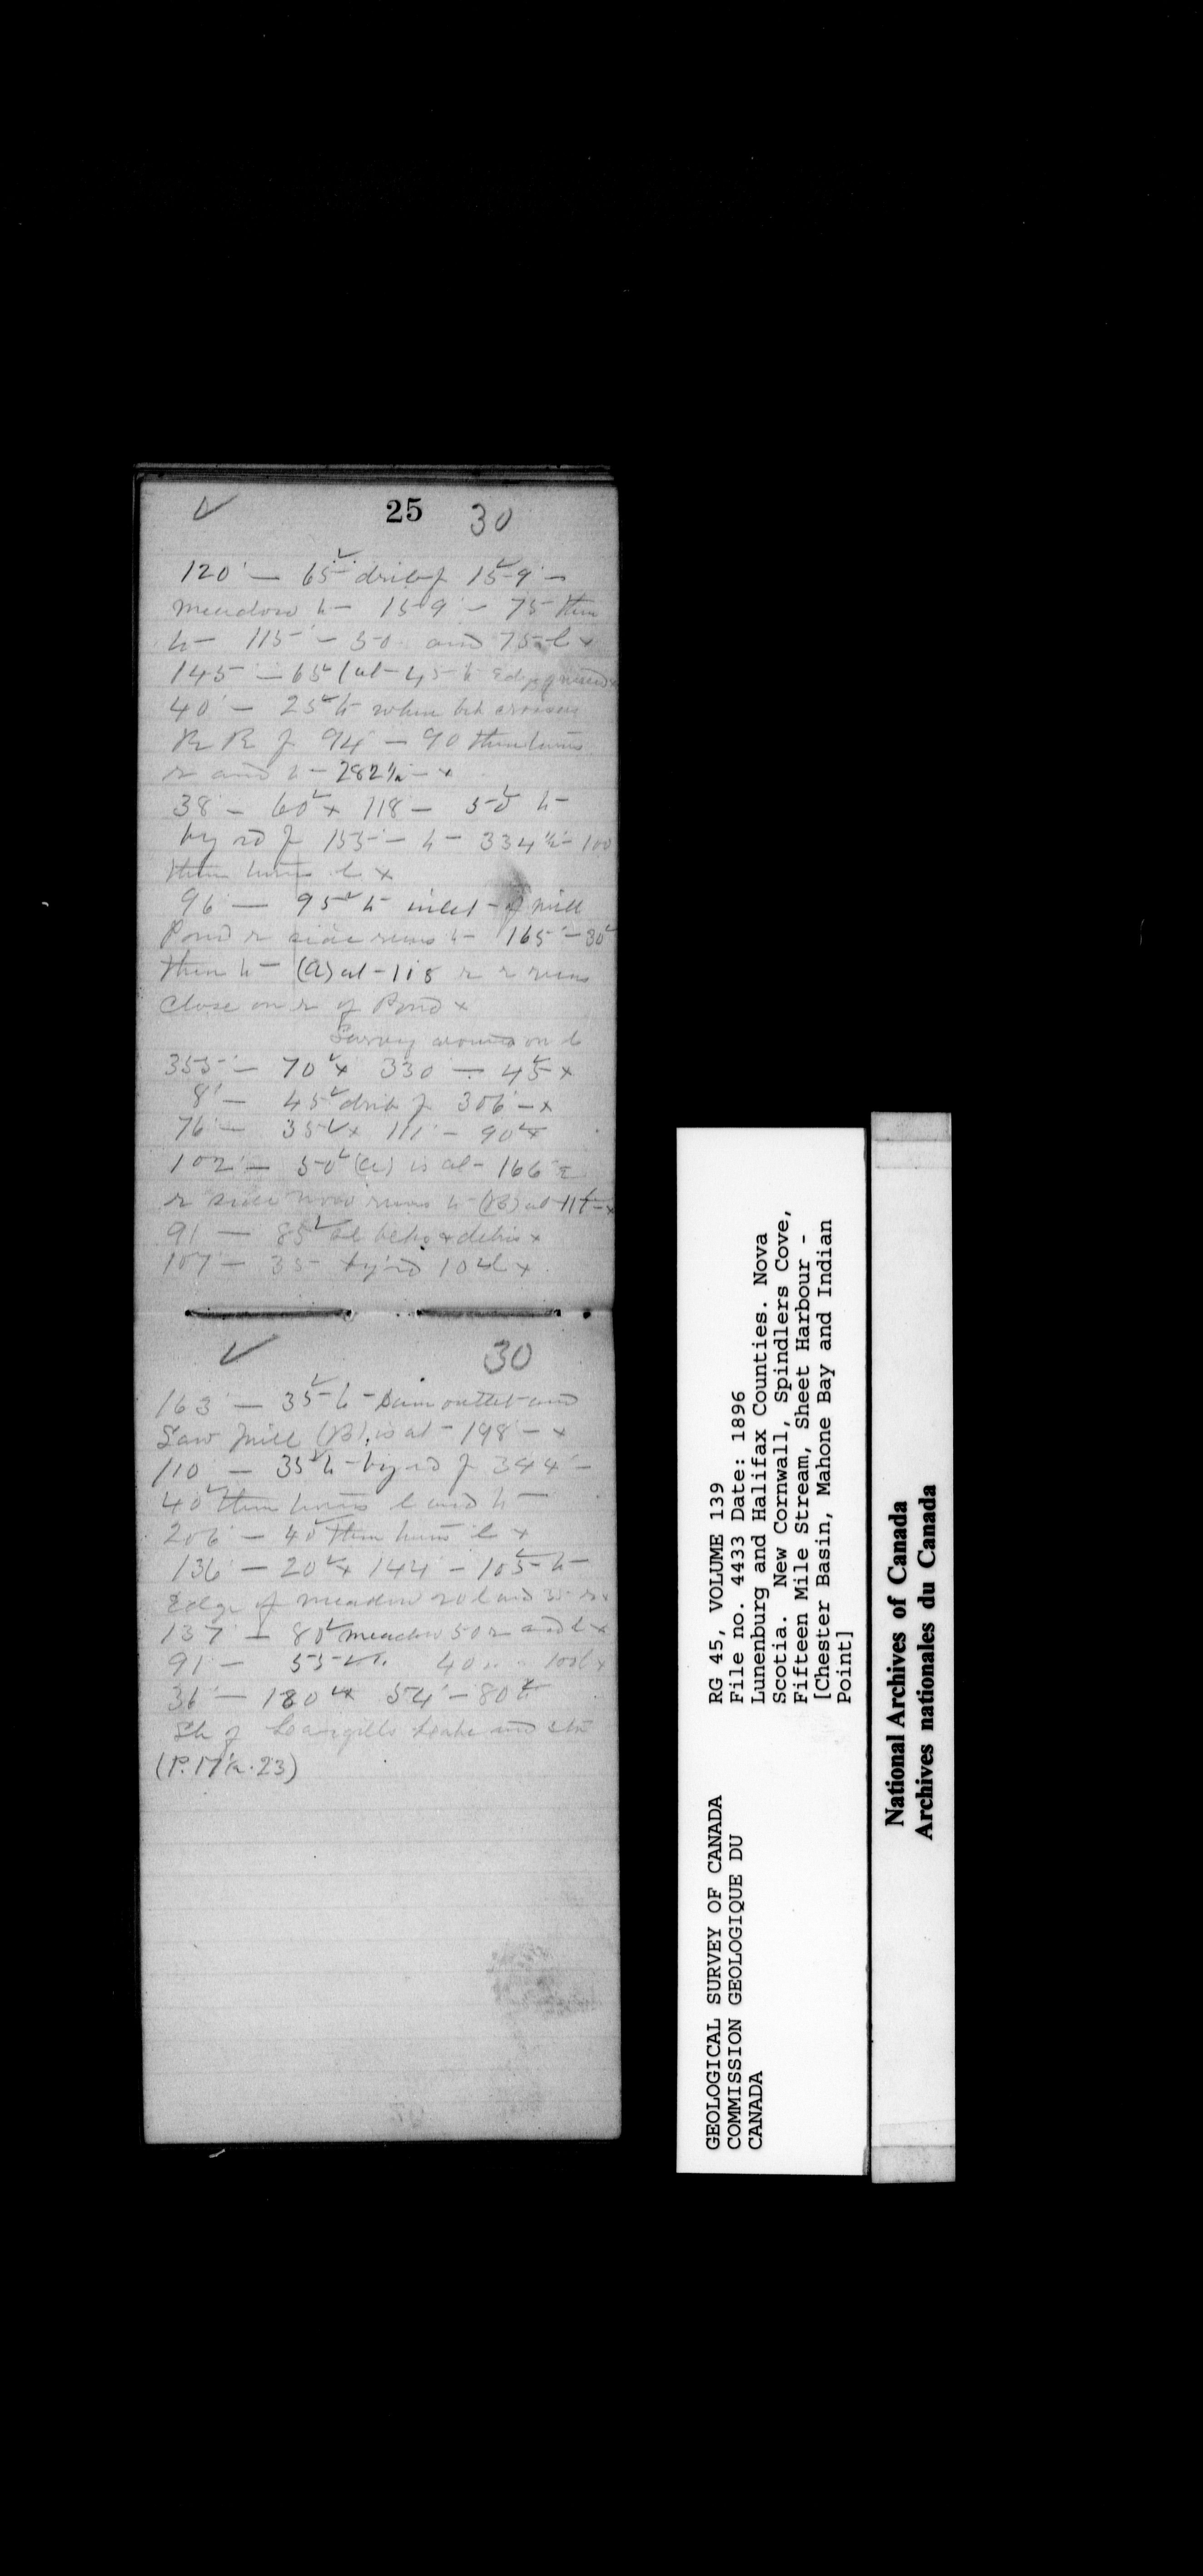 25 30
120° — 65 drib of 159° —
meadow h — 159° — 75 then
h — 115° — 50 and 75 l x
145 — 65 (at — 45 h Edge of
40° — 25 h when crosses
R R of 94 — 90 then turns
r and h — 282½ — x
38° — 60 x 118 — 50 h —
by rd of 155° — h — 334½° — 100
then turns l x
96° — 95 h inlet of Mill
Pond r side runs h — 165° — 30
then h — (A) at — 118 r r runs
close on r of Pond x
Survey around on l
355° — 70 x 330 — 45 x
8° — 45 drib of 306° — x
76° — 35 x 111° — 90 x
102° — 50 (A) is at — 166° &
r side now runs h — (B) at 117 — x
91 — 85 & debris x
107 — 35 by rd 10 l x
30
163° — 35 h — Dam outlet and
Saw Mill (B) is at — 198° — x
110° — 35 h — by rd of 344° —
40 then turns l and h —
206° — 40 then turns l x
136 — 20 x 144 — 105 h —
Edge of meadow 20 l and 35 r x
137° — 80 meadow 50 r and l x
91° — 55 40 r 100 l x
36° — 180 x 54° — 80 h
Sh of Langille Lake and
(P. 17½. 23)
GEOLOGICAL SURVEY OF CANADA
COMMISSION GEOLOGIQUE DU
CANADA
RG 45, VOLUME 139
File no. 4433 Date: 1896
Lunenburg and Halifax Counties. Nova
Scotia. New Cornwall, Spindlers Cove,
Fifteen Mile Stream, Sheet Harbour -
[Chester Basin, Mahone Bay and Indian
Point]
National Archives of Canada
Archives nationales du Canada